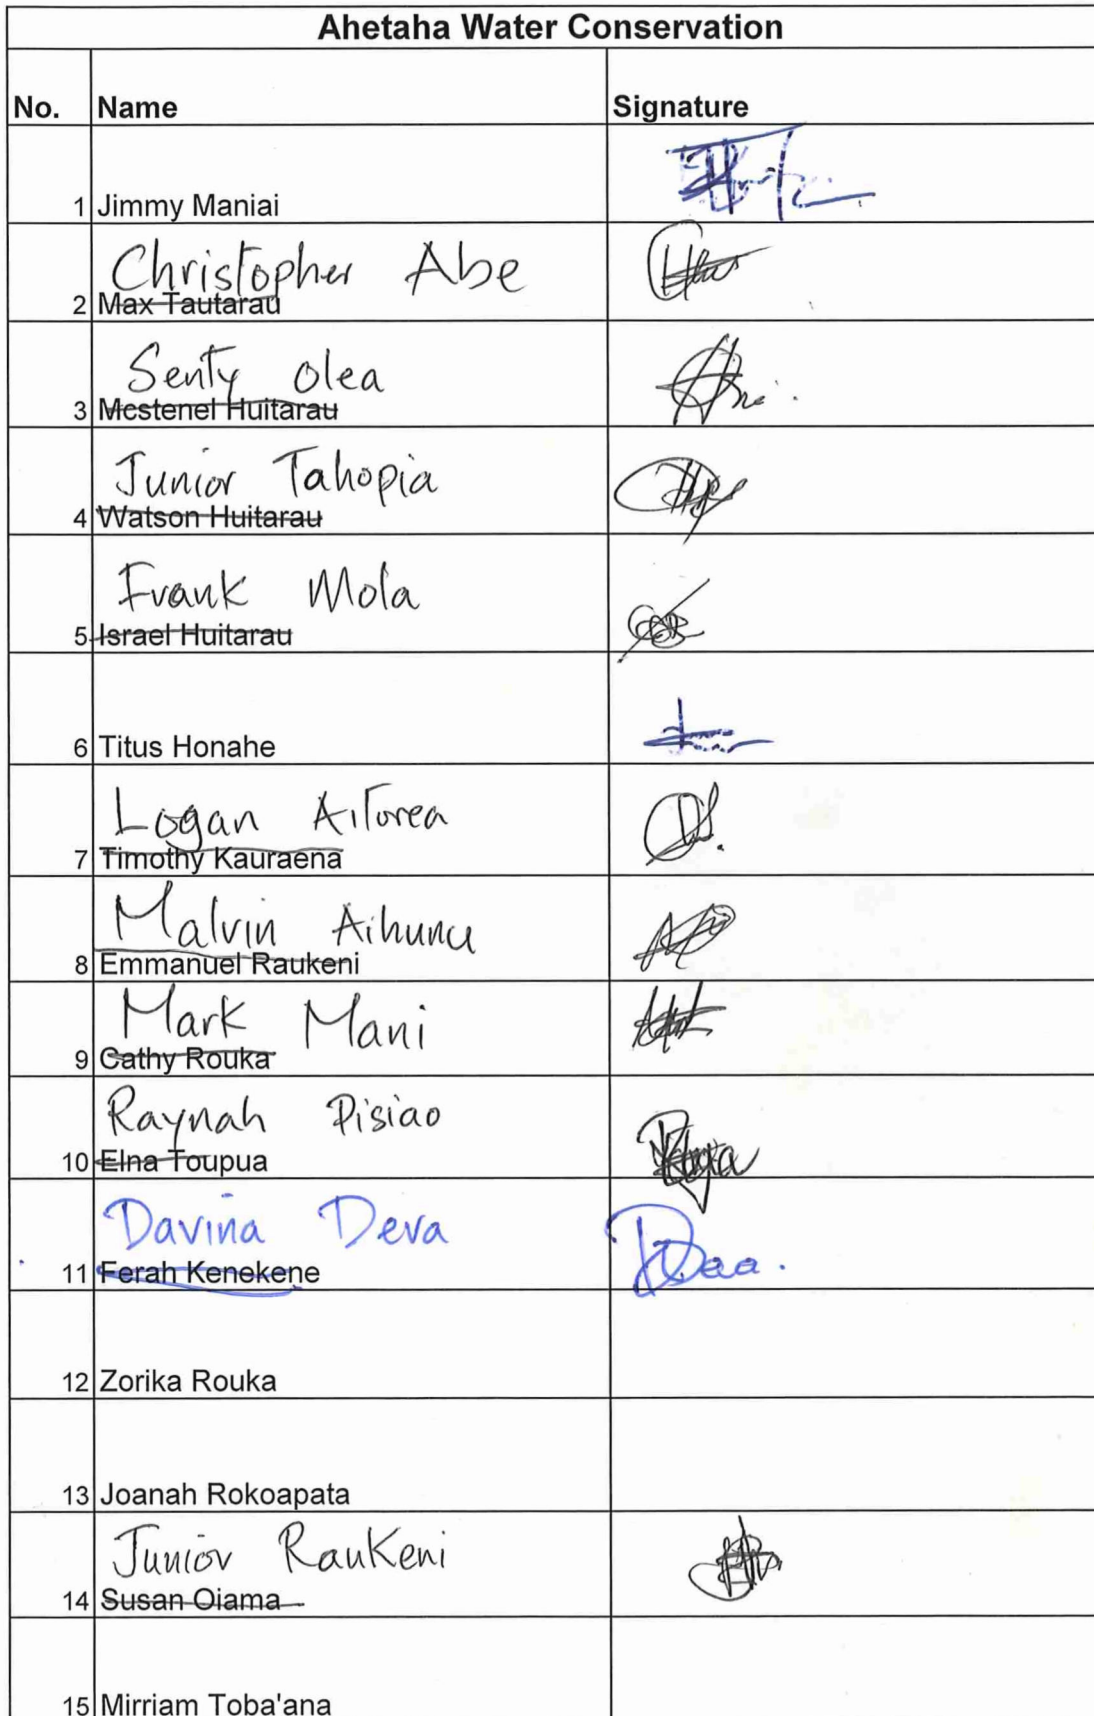 Ahetaha Water Conservation
No. Name Signature
1 Jimmy Maniai
Christopher Abe
2 Max Tautarau
Senty Olea
3 Mcstenel Huitarau
Junior Tahopia
4 Watson Huitarau
Frank Mola
5 Israel Huitarau
6 Titus Honahe
Logan Aitorea
7 Timothy Kauraena
Malvin Aihunu
8 Emmanuel Raukeni
Mark Mani
9 Cathy Rouka
Raynah Pisiao
10 Elna Toupua
Davina Deva
11 Ferah Kenekene
12 Zorika Rouka
13 Joanah Rokoapata
Junior Raukeni
14 Susan Oiama
15 Mirriam Toba'ana